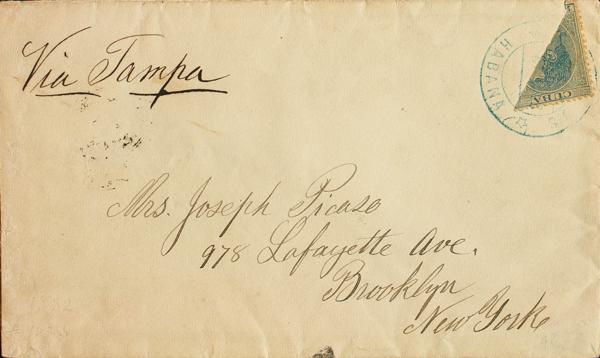 Via Tampa
HABANA
CUBA
Mrs. Joseph Picaso
978 Lafayette Ave.
Brooklyn
New York